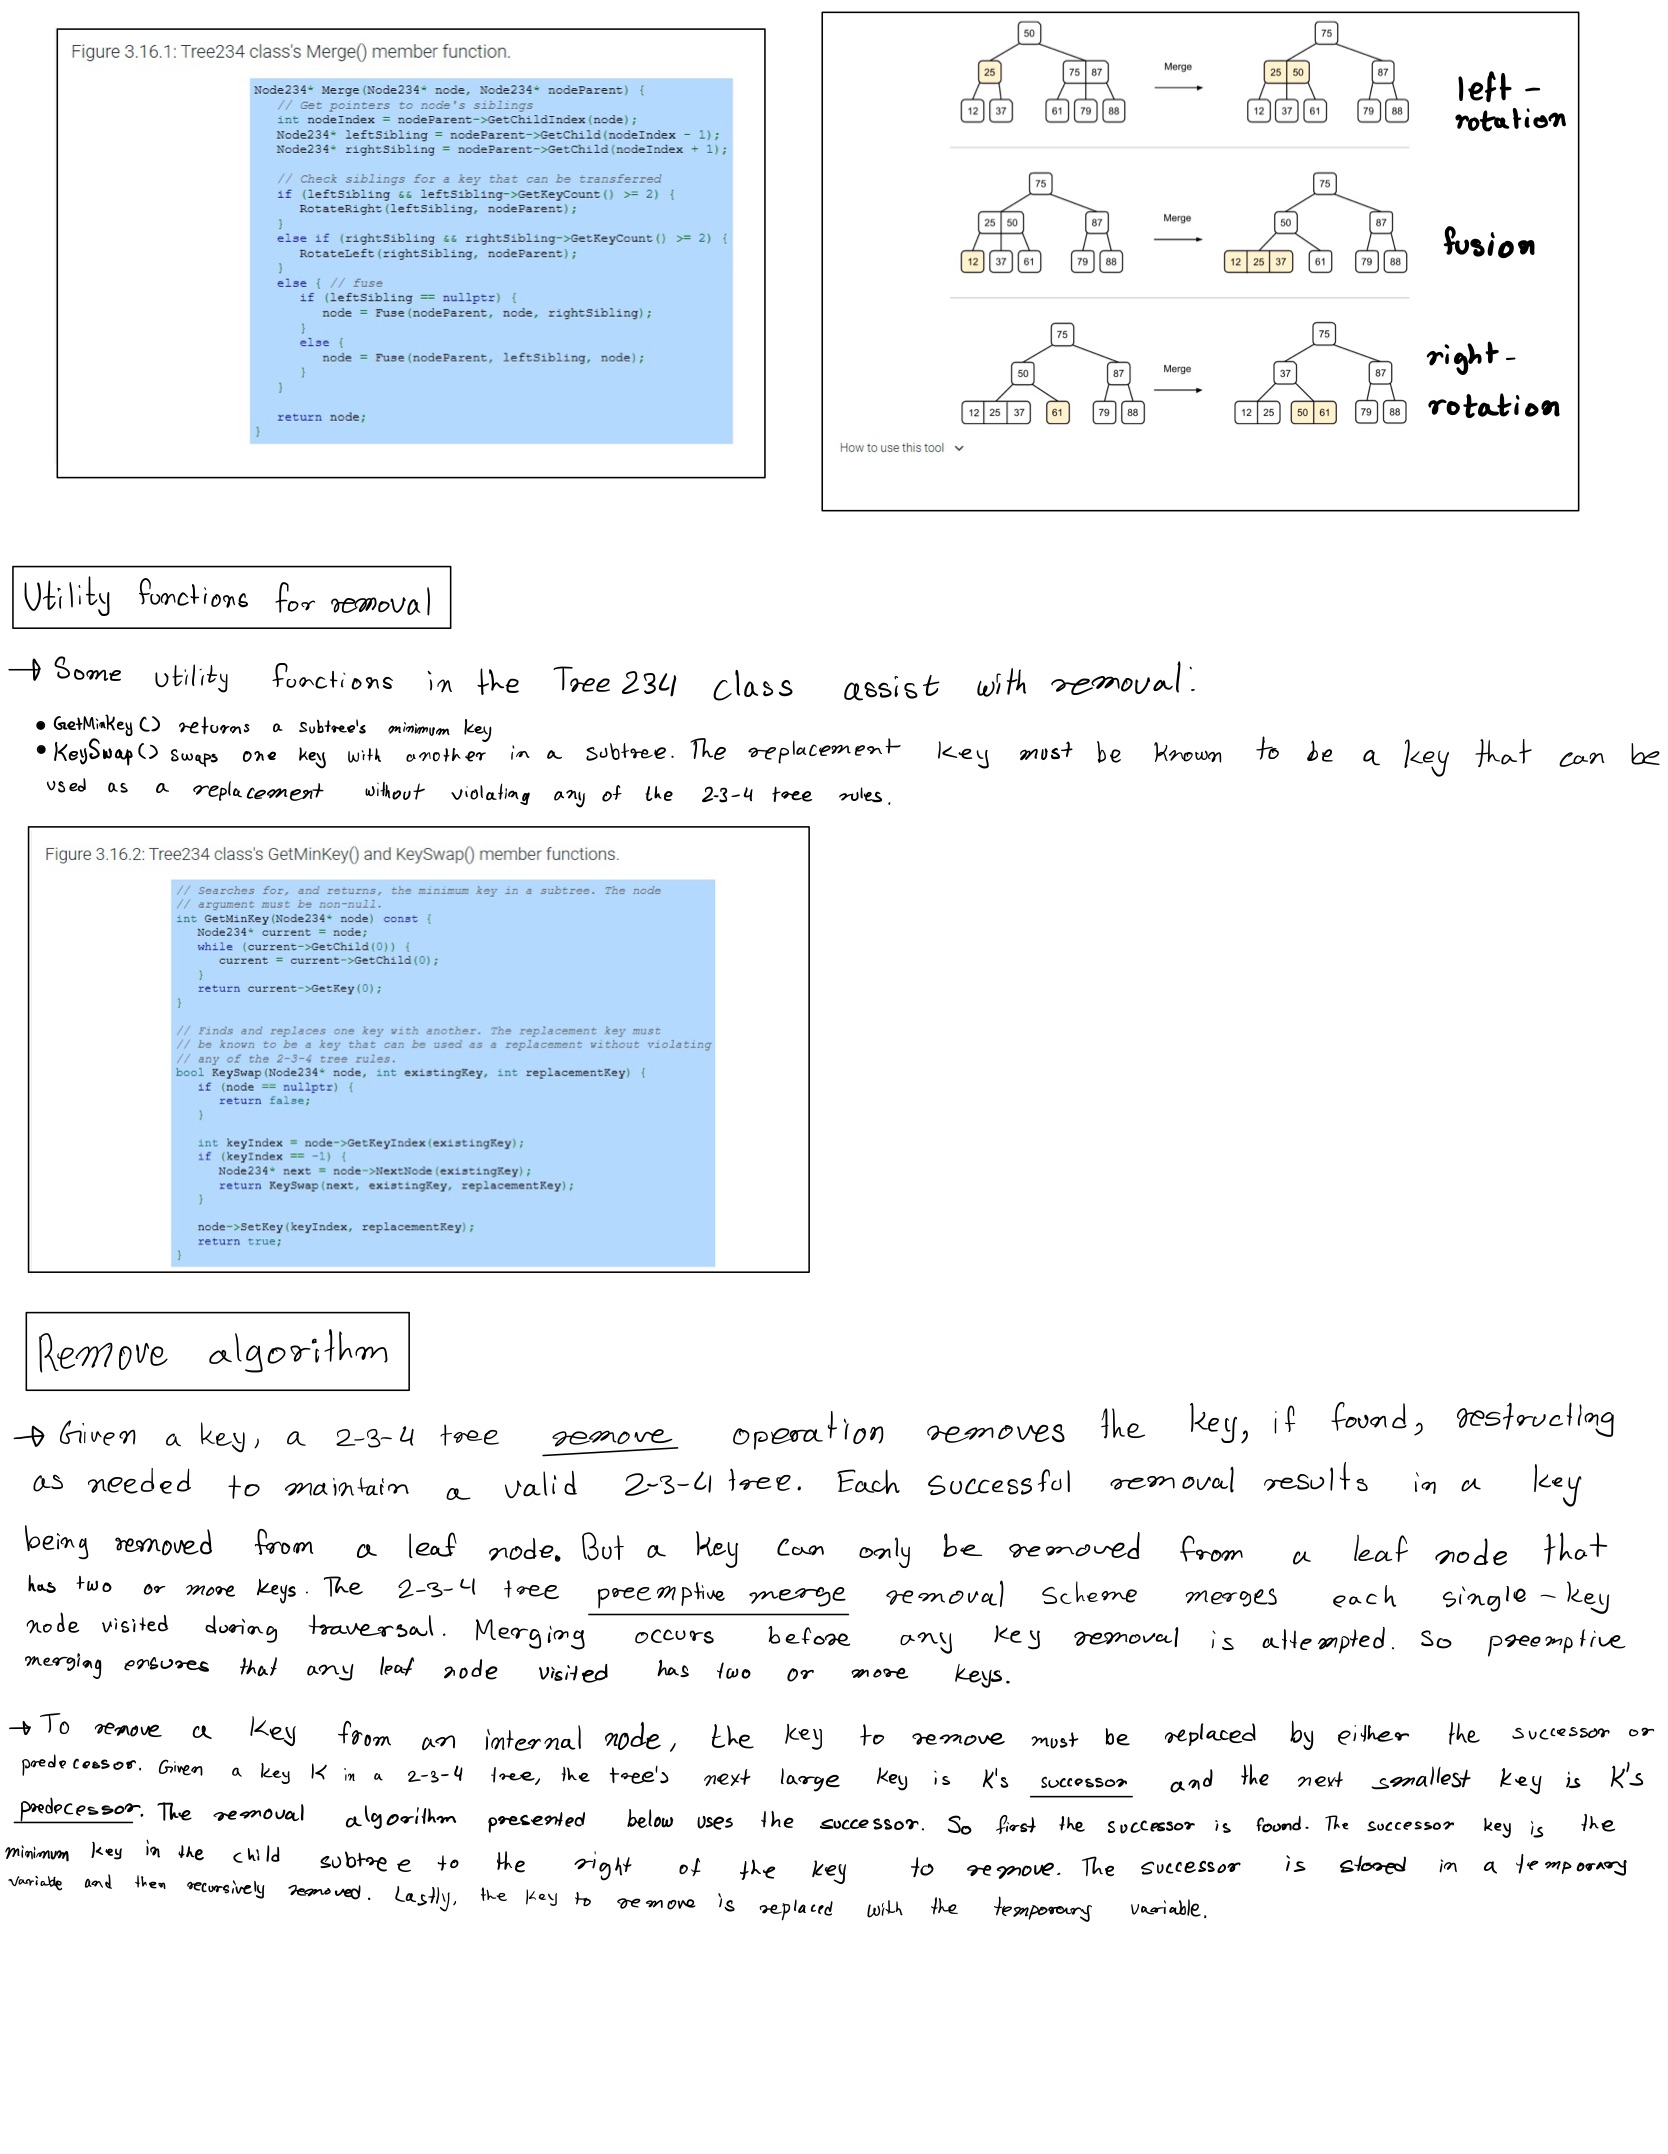 Figure 3.16.1: Tree234 class's Merge() member function.
Node234* Merge(Node234* node, Node234* nodeParent) {
// Get pointers to node's siblings
int nodeIndex = nodeParent->GetChildIndex(node);
Node234* leftSibling = nodeParent->GetChild(nodeIndex - 1);
Node234* rightSibling = nodeParent->GetChild(nodeIndex + 1);
// Check siblings for a key that can be transferred
if (leftSibling && leftSibling->GetKeyCount() >= 2) {
RotateRight(leftSibling, nodeParent);
}
else if (rightSibling && rightSibling->GetKeyCount() >= 2) {
RotateLeft(rightSibling, nodeParent);
}
else { // fuse
if (leftSibling == nullptr) {
node = Fuse(nodeParent, node, rightSibling);
}
else {
node = Fuse(nodeParent, leftSibling, node);
}
}
return node;
}
50 75
25 75 87 Merge 25 50 87
12 37 61 79 88 12 37 61 79 88
left -
rotation
75 75
25 50 87 Merge 50 87
12 37 61 79 88 12 25 37 61 79 88
fusion
75 75
50 87 Merge 37 87
12 25 37 61 79 88 12 25 50 61 79 88
right -
rotation
How to use this tool
Utility functions for removal
→ Some utility functions in the Tree 234 class assist with removal:
• GetMinKey() returns a subtree's minimum key
• KeySwap() swaps one key with another in a subtree. The replacement key must be known to be a key that can be
used as a replacement without violating any of the 2-3-4 tree rules.
Figure 3.16.2: Tree234 class's GetMinKey() and KeySwap() member functions.
// Searches for, and returns, the minimum key in a subtree. The node
// argument must be non-null.
int GetMinKey(Node234* node) const {
Node234* current = node;
while (current->GetChild(0)) {
current = current->GetChild(0);
}
return current->GetKey(0);
}
// Finds and replaces one key with another. The replacement key must
// be known to be a key that can be used as a replacement without violating
// any of the 2-3-4 tree rules.
bool KeySwap(Node234* node, int existingKey, int replacementKey) {
if (node == nullptr) {
return false;
}
int keyIndex = node->GetKeyIndex(existingKey);
if (keyIndex == -1) {
Node234* next = node->NextNode(existingKey);
return KeySwap(next, existingKey, replacementKey);
}
node->SetKey(keyIndex, replacementKey);
return true;
}
Remove algorithm
→ Given a key, a 2-3-4 tree remove operation removes the key, if found, restructing
as needed to maintain a valid 2-3-4 tree. Each successful removal results in a key
being removed from a leaf node. But a key can only be removed from a leaf node that
has two or more keys. The 2-3-4 tree preemptive merge removal scheme merges each single-key
node visited during traversal. Merging occurs before any key removal is attempted. So preemptive
merging ensures that any leaf node visited has two or more keys.
→ To remove a key from an internal node, the key to remove must be replaced by either the successor or
predecessor. Given a key K in a 2-3-4 tree, the tree's next large key is K's successor and the next smallest key is K's
predecessor. The removal algorithm presented below uses the successor. So first the successor is found. The successor key is the
minimum key in the child subtree to the right of the key to remove. The successor is stored in a temporary
variable and then recursively removed. Lastly, the key to remove is replaced with the temporary variable.